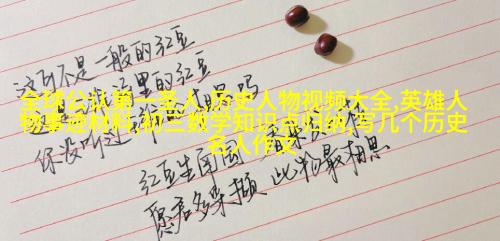 这可不是一般的红豆
这里的红豆
全球公认第一圣人,历史人物视频大全,英雄人
物事迹材料,初三数学知识点归纳,写几个历史
名人作文
你没听过
红豆生南国
愿君多采撷 此物最相思